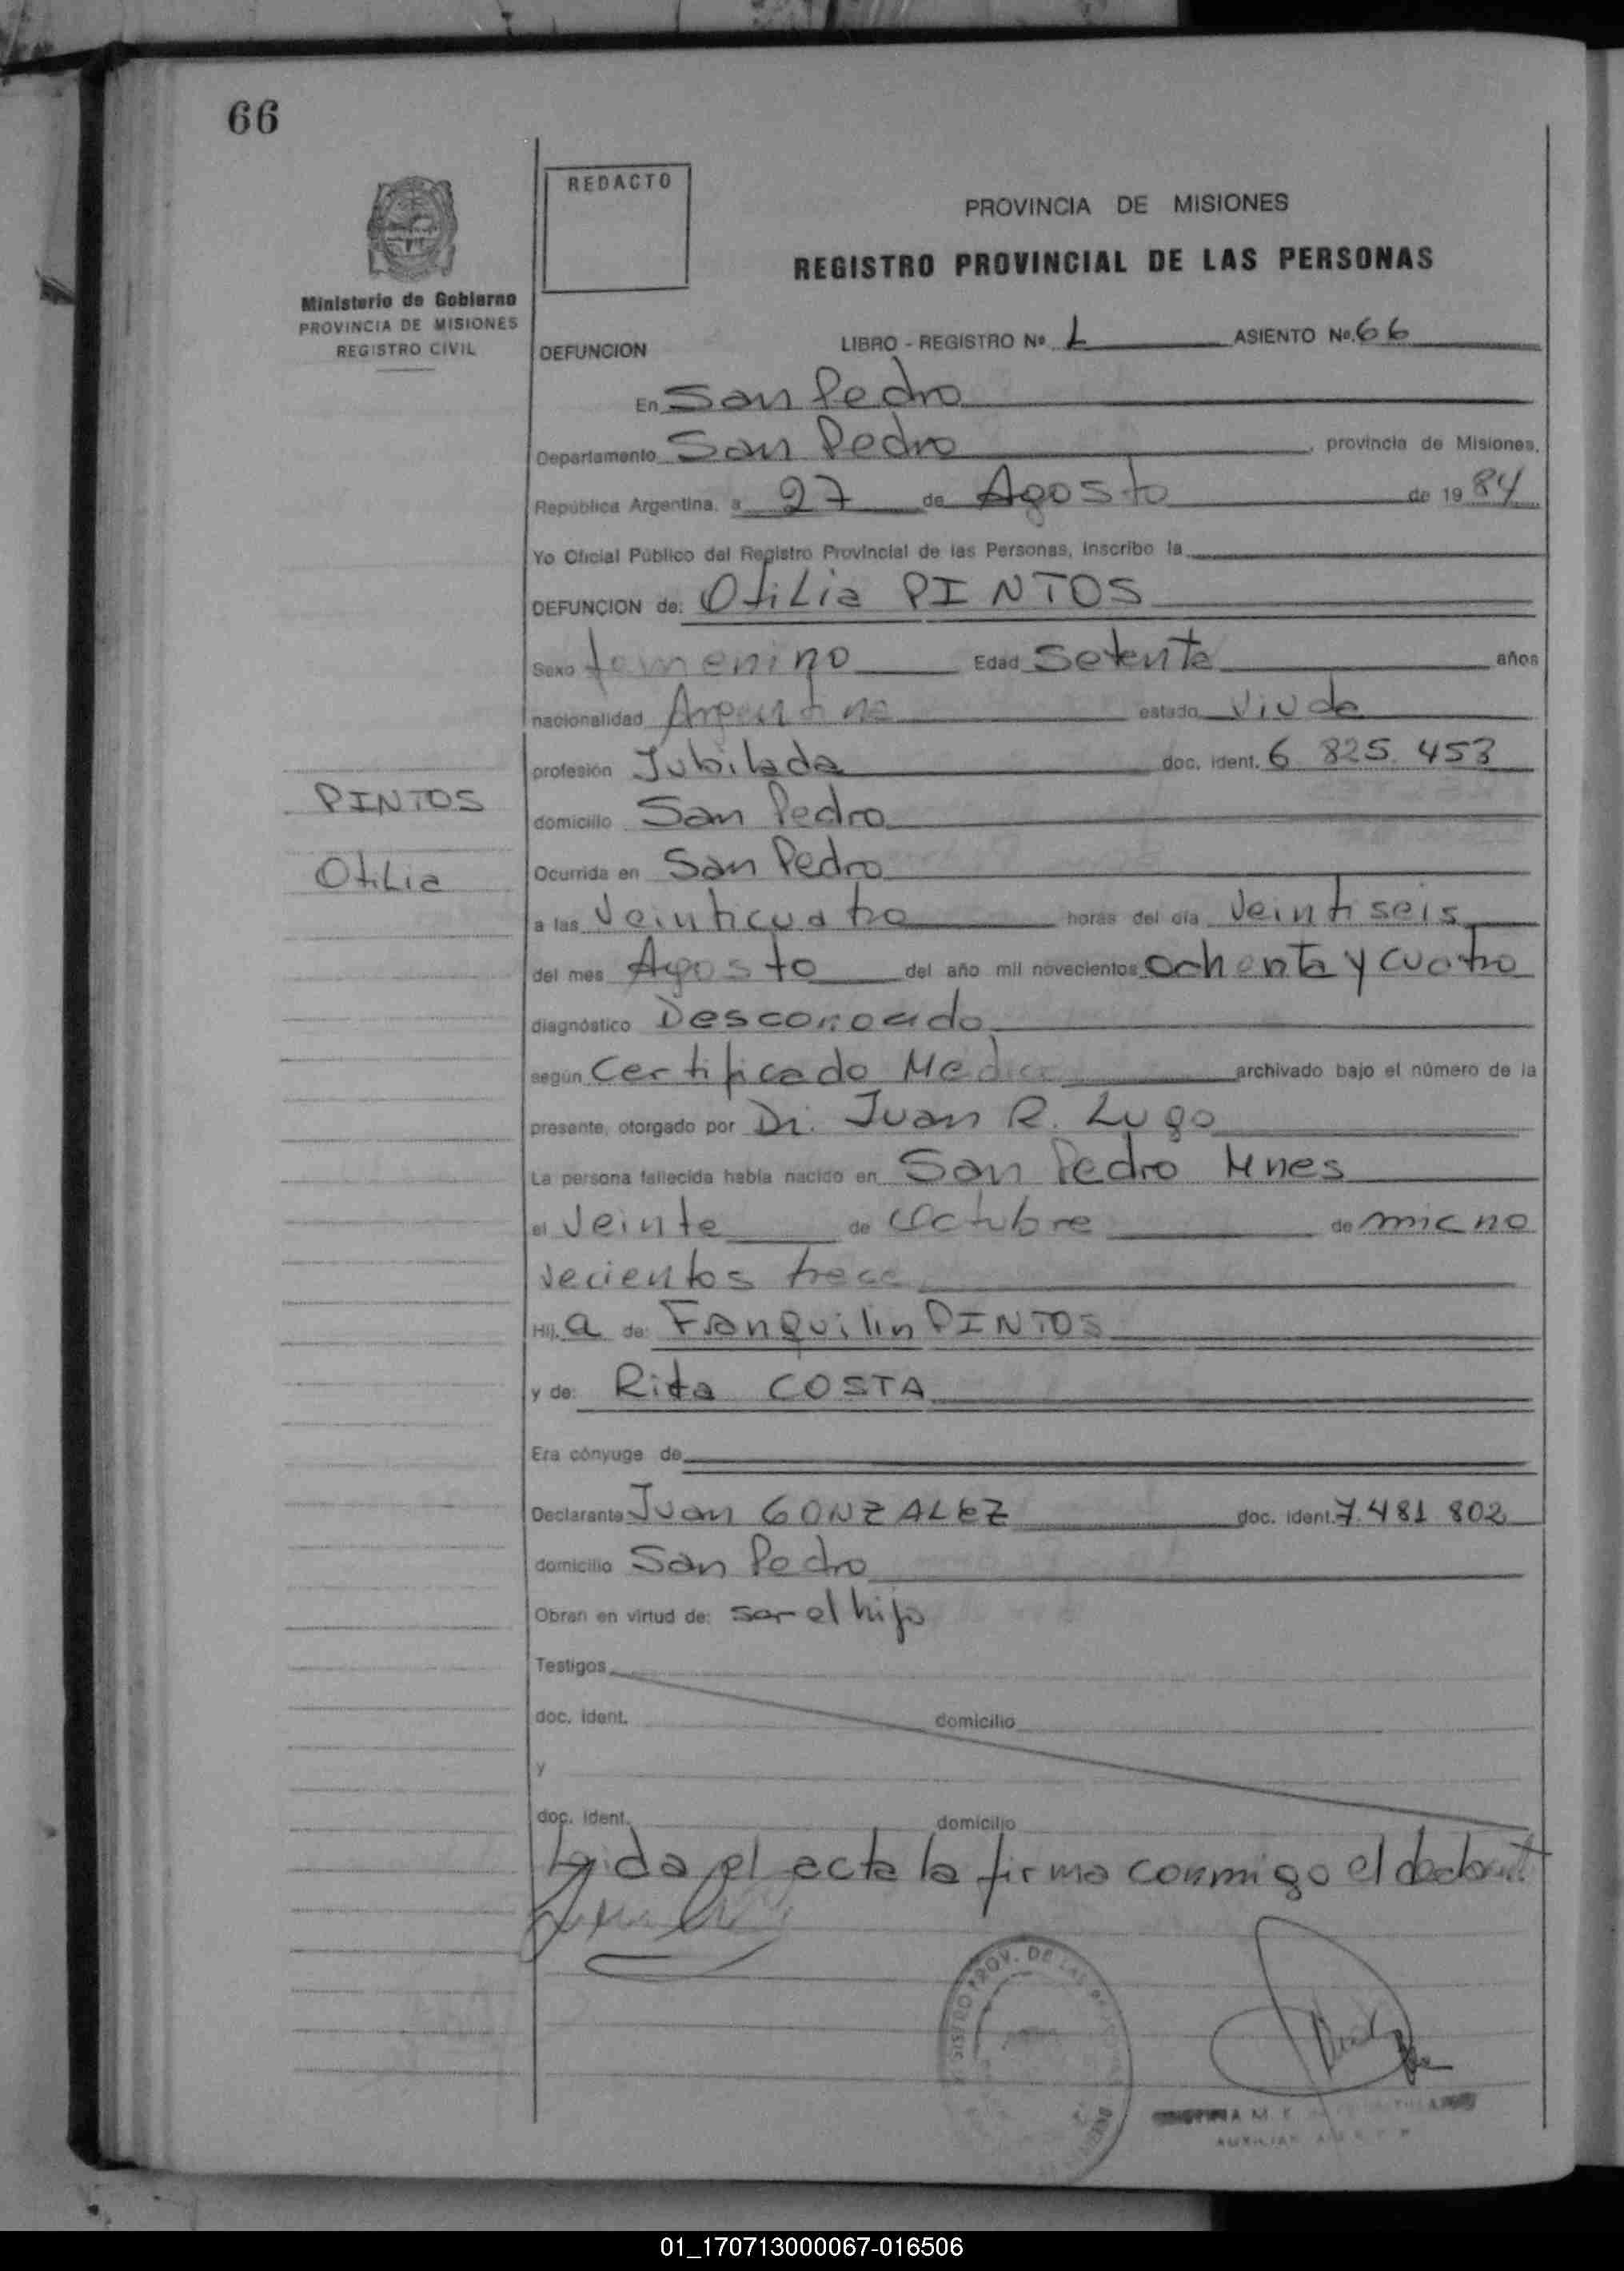 66
REDACTO
PROVINCIA DE MISIONES
REGISTRO PROVINCIAL DE LAS PERSONAS
Ministerio de Gobierno
PROVINCIA DE MISIONES
REGISTRO CIVIL
DEFUNCION LIBRO - REGISTRO Nº L ASIENTO Nº. 66
En San Pedro
Departamento San Pedro , provincia de Misiones,
República Argentina, a 27 de Agosto de 19 84
Yo Oficial Público del Registro Provincial de las Personas, inscribo la
DEFUNCION de: Otilia PINTOS
Sexo femenino Edad Setenta años
nacionalidad Argentina estado Viuda
profesión Jubilada doc. ident. 6 825. 453
PINTOS
domicilio San Pedro
Otilia
Ocurrida en San Pedro
a las Veinticuatro horas del día Veintiseis
del mes Agosto del año mil novecientos ochenta y cuatro
diagnóstico Desconocido
según Certificado Medico archivado bajo el número de la
presente, otorgado por Dr. Juan R. Lugo
La persona fallecida había nacido en San Pedro Mnes
el Veinte de Octubre de mil no
vecientos trece
Hij. a de: Franquilin PINTOS
y de: Rita COSTA
Era cónyuge de
Declarante Juan GONZALEZ doc. ident. 7.481 802
domicilio San Pedro
Obran en virtud de: ser el hijo
Testigos
doc. ident. domicilio
y
doc. ident. domicilio
Leida el acta la firma conmigo el declarant
PROV. DE LAS
AUXILIAR
01_170713000067-016506